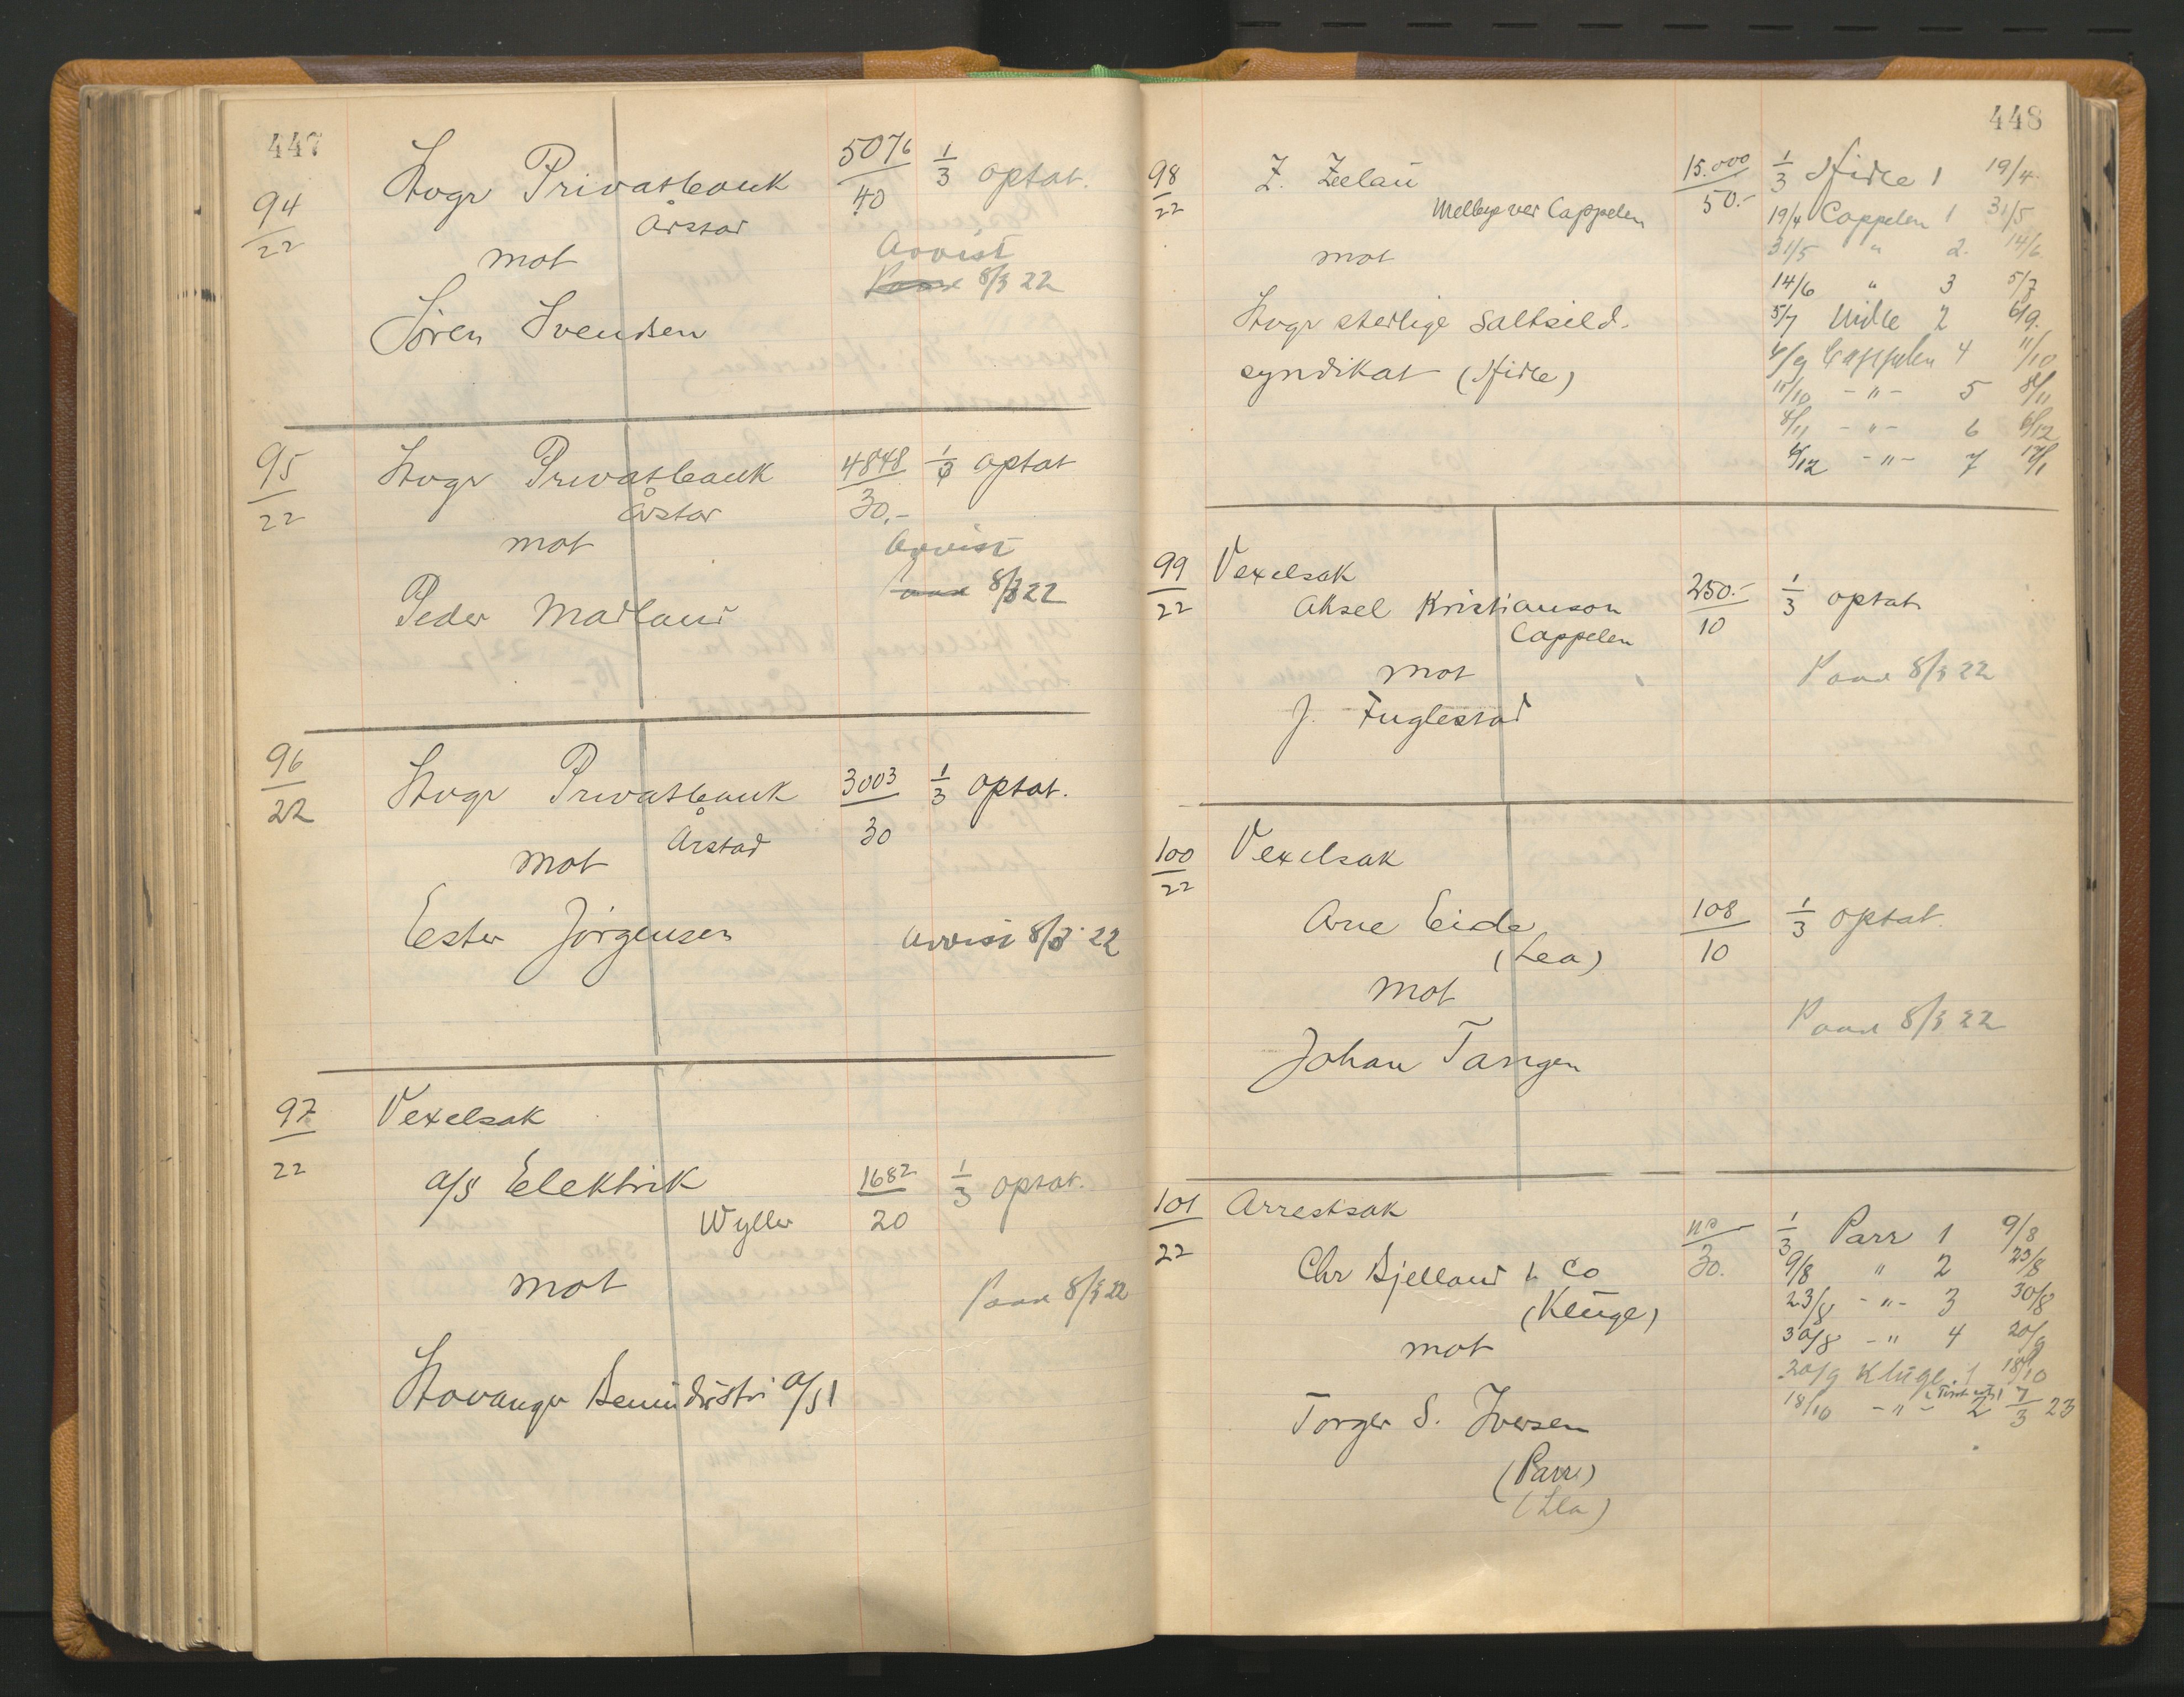 447
94/22 Stvgr Privatbank 5076/40 1/3 optat.
Årstad
mot Avvist
8/3 22
Søren Svendsen
95/22 Stvgr Privatbank 4848/30,- 1/3 optat
Årstad
mot Avvist
8/3 22
Peder Madland
96/22 Stvgr Privatbank 3003/30 1/3 optat.
Årstad
mot
Ester Jørgensen Avvist 8/3 22
97/22 Vexelsak
A/S Elektrik 1682/20 1/3 optat.
Wyller
mot Paad 8/3 22
Stavanger A/S
448
98/22 Z. Zeelau 15.000/50.- 1/3 1 19/4
Cappelen 19/4 Cappelen 1 31/5
mot 31/5 " 2. 14/6
14/6 " 3 5/7
Stvgr saltsild- 5/7 2 6/9.
syndikat 6/9 Cappelen 4 11/10
11/10 -"- 5 8/11
8/11 -"- 6 6/12
6/12 -"- 7 17/1
99/22 Vexelsak
Aksel Kristianson 250.-/10 1/3 optat
Cappelen
mot Paad 8/3 22
J. Fuglestad
100/22 Vexelsak
Arne Eide 108/10 1/3 optat.
(Lea)
mot
Paad 8/3 22
Johan Tangen
101/22 Arrestsak
1/3 Parr 1 9/8
Chr Bjelland & Co 30. 9/8 " 2 23/8
(Kluge) 23/8 -"- 3 30/8
mot 30/8 -" 4 20/9
20/9 Kluge 1 18/10
Torger S. Iversen 18/10 -"- 2 7/3 23
(Parr)
(Lea)